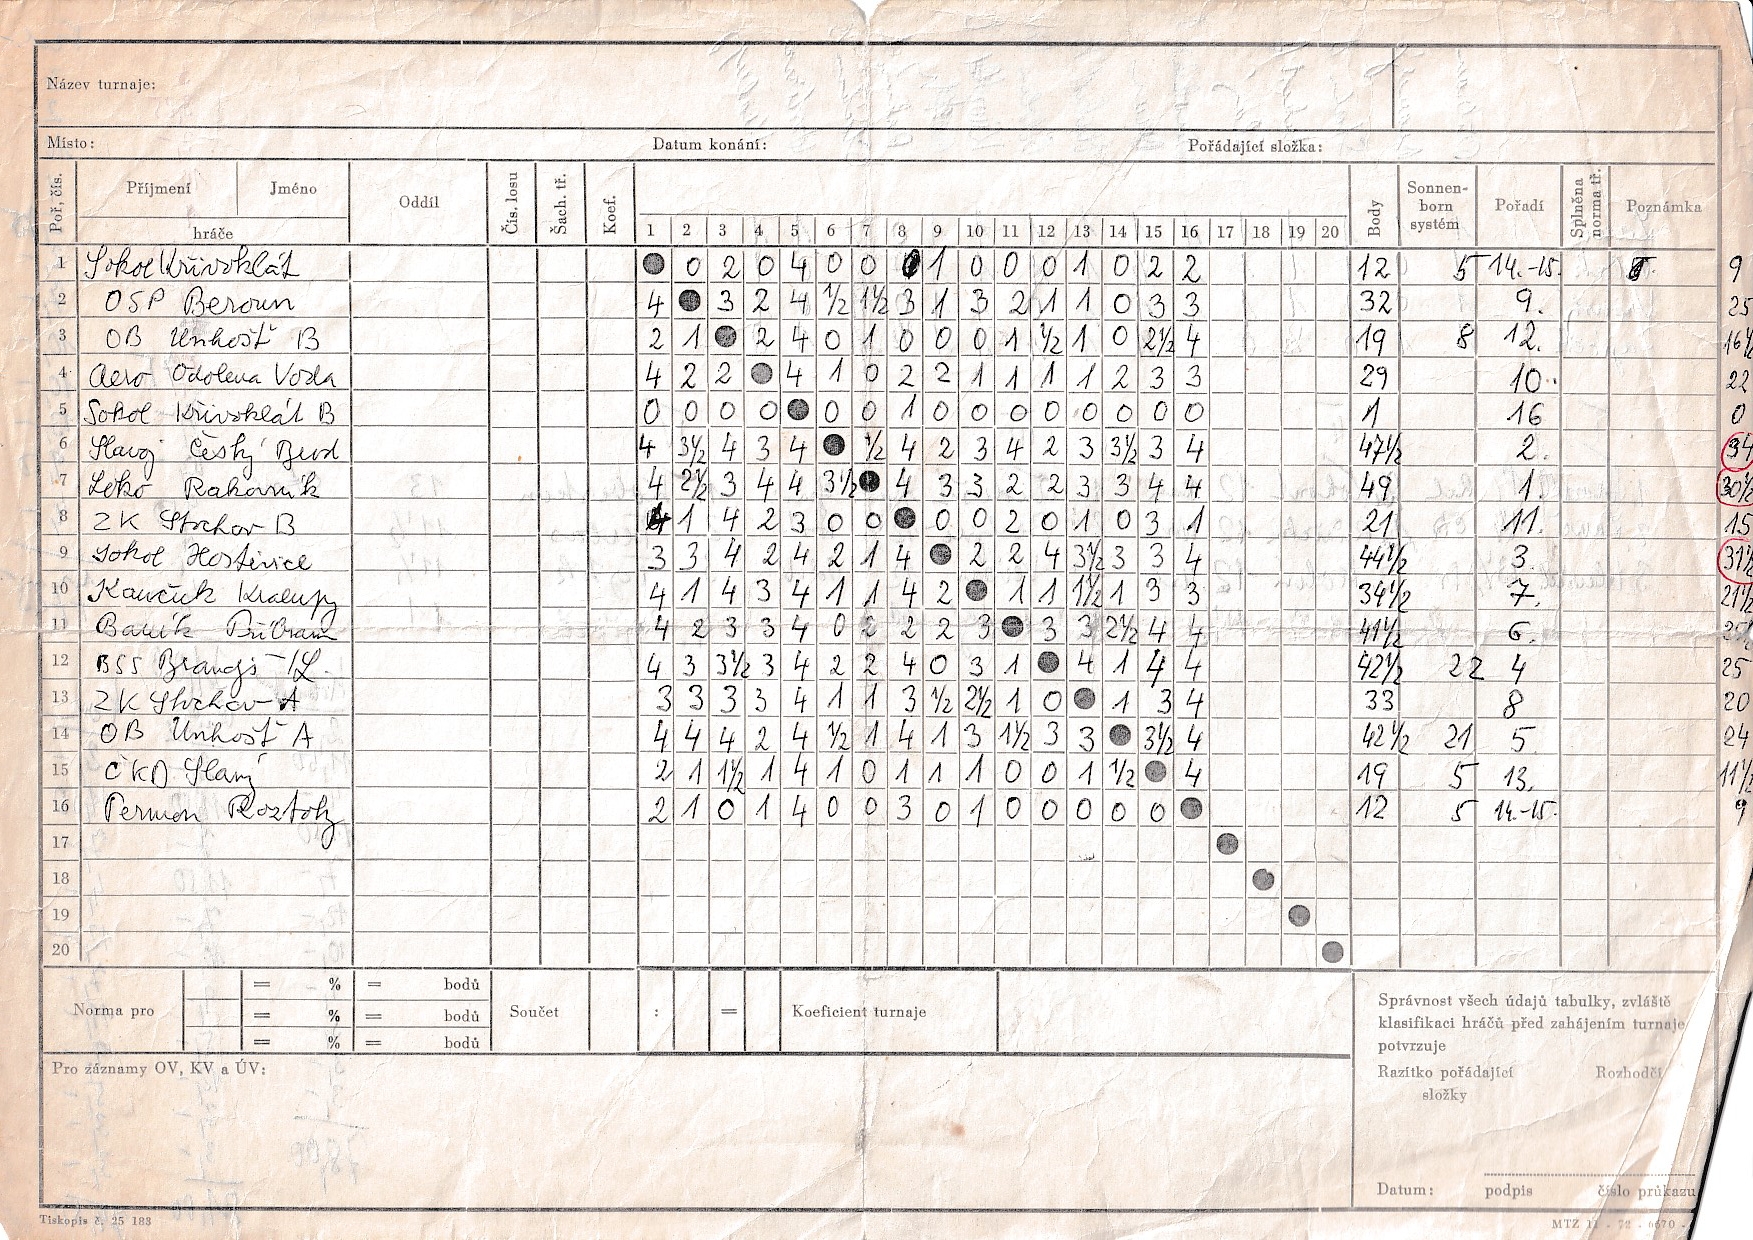 Název turnaje:
Místo: Datum konání: Pořádající složka:
Poř. čís. Příjmení Jméno hráče Oddíl Čís. losu Šach. tř. Koef. 1 2 3 4 5 6 7 8 9 10 11 12 13 14 15 16 17 18 19 20 Body Sonnen-born systém Pořadí Splněna norma tř. Poznámka
1 Sokol Křivoklát 0 2 0 4 0 0 1 0 0 0 1 0 2 2 12 5 14.-15. 9
2 OSP Beroun 4 3 2 4 1/2 1 1/2 3 1 3 2 1 1 0 3 3 32 9. 25
3 OB Unhošť B 2 1 2 4 0 1 0 0 0 1 1/2 1 0 2 1/2 4 19 8 12. 16 1/2
4 Aero Odolena Voda 4 2 2 4 1 0 2 2 1 1 1 1 2 3 3 29 10. 22
5 Sokol Křivoklát B 0 0 0 0 0 0 1 0 0 0 0 0 0 0 0 1 16 0
6 Slavoj Český Brod 4 3 1/2 4 3 4 1/2 4 2 3 4 2 3 3 1/2 3 4 47 1/2 2. 34
7 Leko Rakovník 4 2 1/2 3 4 4 3 1/2 4 3 3 2 2 3 3 4 4 49 1. 30 1/2
8 ZK Strchov B 1 4 2 3 0 0 0 0 2 0 1 0 3 1 21 11. 15
9 Sokol Hostivice 3 3 4 2 4 2 1 4 2 2 4 3 1/2 3 3 4 44 1/2 3. 31 1/2
10 Kaučuk Kralupy 4 1 4 3 4 1 1 4 2 1 1 1 1/2 1 3 3 34 1/2 7. 21 1/2
11 Baník Příbram 4 2 3 3 4 0 2 2 2 3 3 3 2 1/2 4 4 41 1/2 6.
12 BSS Brandýs /L. 4 3 3 1/2 3 4 2 2 4 0 3 1 4 1 4 4 42 1/2 22 4 25
13 ZK Strchov A 3 3 3 3 4 1 1 3 1/2 2 1/2 1 0 1 3 4 33 8 20
14 OB Unhošť A 4 4 4 2 4 1/2 1 4 1 3 1 1/2 3 3 3 1/2 4 42 1/2 21 5 24
15 ČKD Slaný 2 1 1 1/2 1 4 1 0 1 1 1 0 0 1 1/2 4 19 5 13. 11 1/2
16 Permon Roztoky 2 1 0 1 4 0 0 3 0 1 0 0 0 0 0 12 5 14.-15. 9
17
18
19
20
Norma pro = % = bodů Součet : = Koeficient turnaje
= % = bodů
= % = bodů
Správnost všech údajů tabulky, zvláště
klasifikaci hráčů před zahájením turnaje
potvrzuje
Razítko pořádající složky Rozhodčí
Pro záznamy OV, KV a ÚV:
Datum: podpis číslo průkazu
Tiskopis č. 25 183